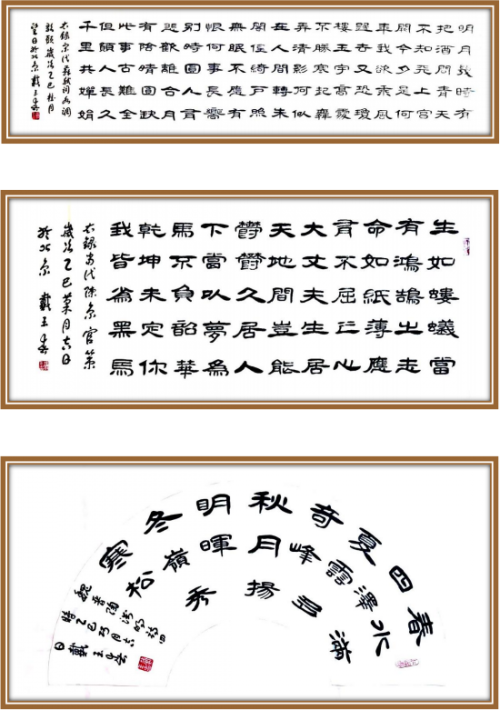 明月幾時有
把酒問青天
不知天上宮
闕今夕是何
年我欲乘風
歸去又恐瓊
樓玉宇高處
不勝寒起舞
弄清影何似
在人間轉朱
閣低綺戶照
無眠不應有
恨何事長嚮
別時圓人有
悲歡離合月
有陰晴圓缺
此事古難全
但願人長久
千里共嬋娟
右録宋代蘇軾詞水調
歌頭歲次乙巳桂月
望日於北京戴玉
生如螻蟻當
有鴻鵠之志
命如紙薄應
有不屈之心
大丈夫生居
天地間豈能
鬱鬱久居人
下當以夢為
馬不負韶華
乾坤未定你
我皆為黑馬
右録古代陳京官策
歲次乙巳菊月六日
於北京戴玉
春水滿
四澤
夏雲多
奇峰
秋月揚
明暉
冬嶺秀
寒松
魏晉陶淵明詩四
時乙巳
日戴玉